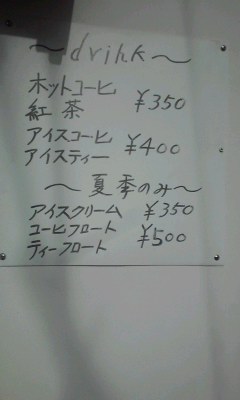 ～drink～
ホットコーヒ
紅茶 ¥350
アイスコーヒ
アイスティー ¥400
～夏季のみ～
アイスクリーム ¥350
コーヒフロート
ティーフロート ¥500